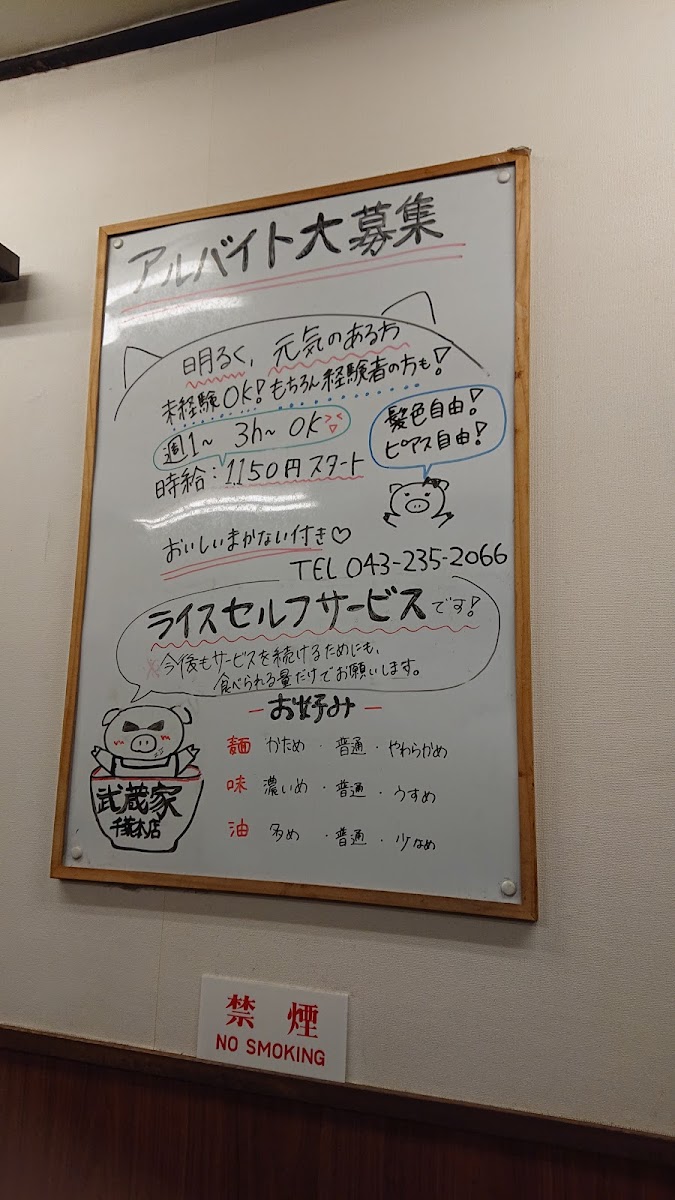 アルバイト大募集
明るく、元気のある方
未経験OK! もちろん経験者の方も!
週1～ 3h～ OK
時給:1150円スタート
髪色自由!
ピアス自由!
おいしいまかない付き♡
TEL 043-235-2066
ライスセルフサービスです!
※今後もサービスを続けるためにも、
食べられる量だけでお願いします。
－お好み－
麺 かため・普通・やわらかめ
味 濃いめ・普通・うすめ
油 多め・普通・少なめ
武蔵家
千葉本店
禁煙
NO SMOKING